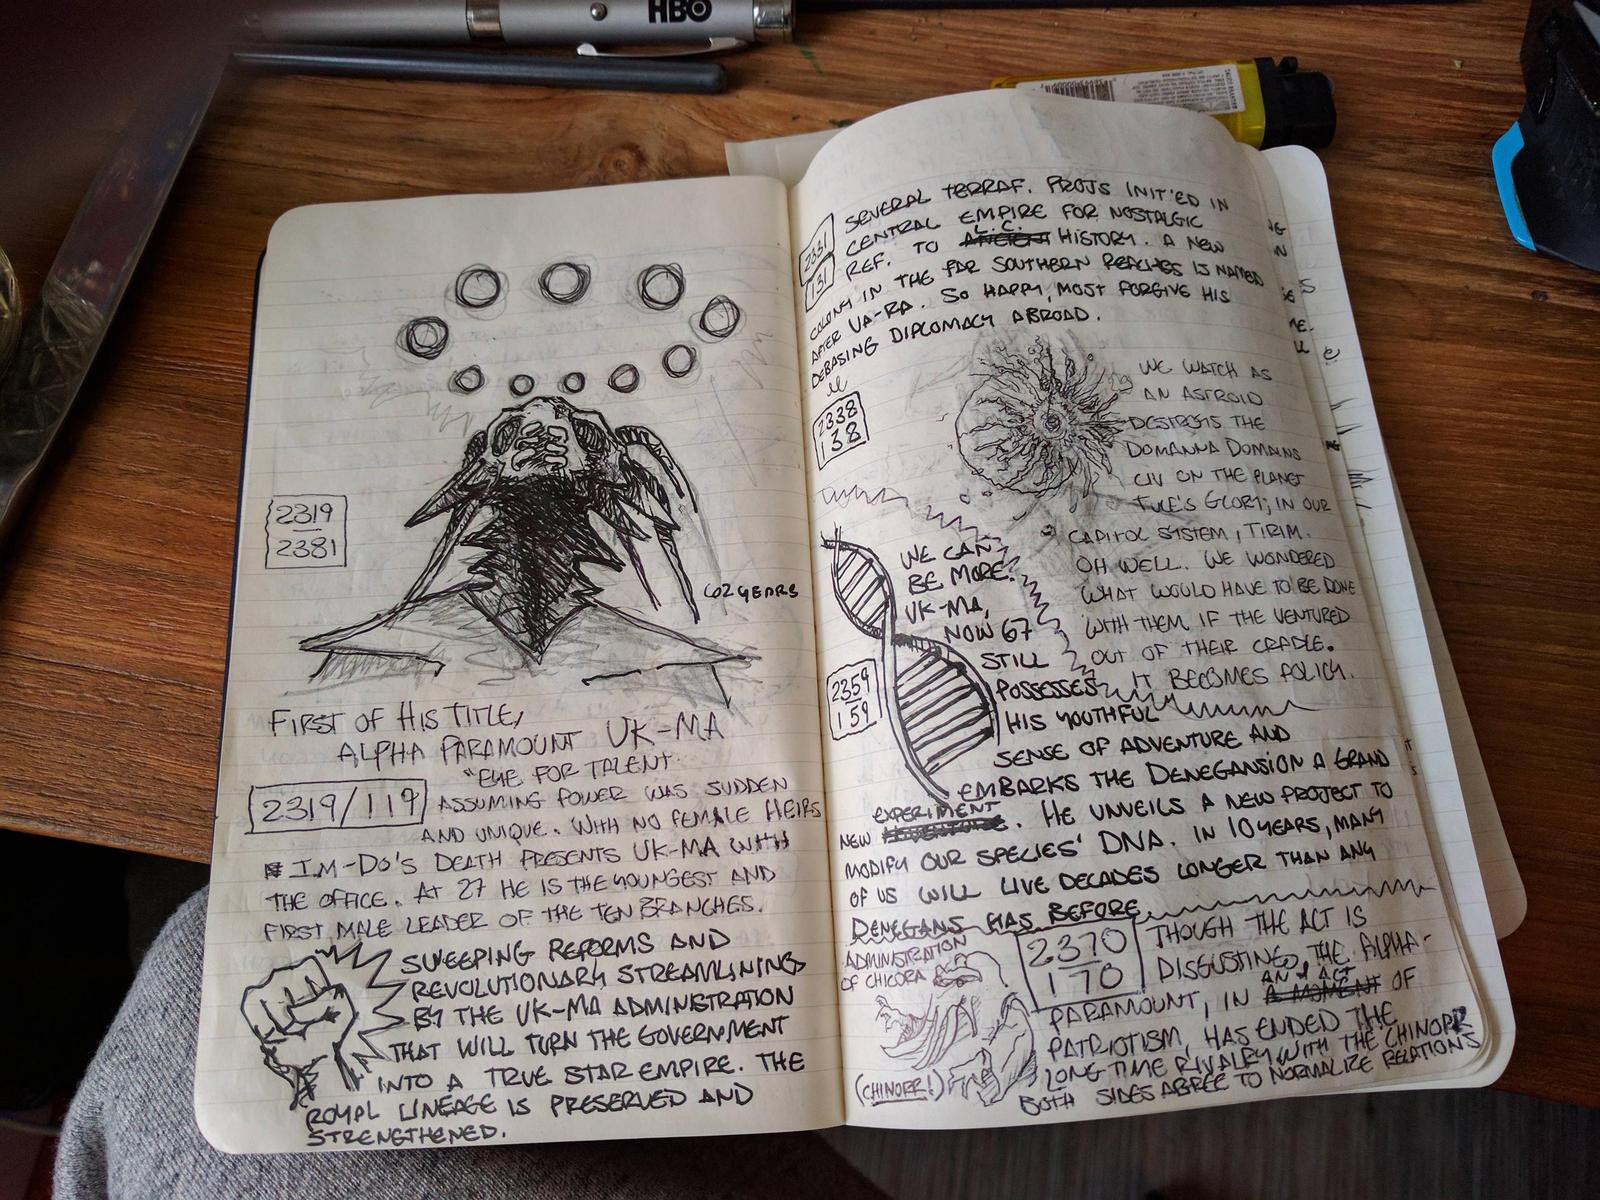 HBO
2319
2381
62 YEARS
FIRST OF HIS TITLE,
ALPHA PARAMOUNT UK-MA
"EYE FOR TALENT.
2319/119
ASSUMING POWER WAS SUDDEN
AND UNIQUE. WITH NO FEMALE HEIRS
I.M-DO'S DEATH PRESENTS UK-MA WITH
THE OFFICE. AT 27 HE IS THE YOUNGEST AND
FIRST MALE LEADER OF THE TEN BRANCHES.
SWEEPING REFORMS AND
REVOLUTIONARY STREAMLINING
BY THE UK-MA ADMINISTRATION
THAT WILL TURN THE GOVERNMENT
INTO A TRUE STAR EMPIRE. THE
ROYAL LINEAGE IS PRESERVED AND
STRENGTHENED.
2331
131
SEVERAL TERRAF. PROJS INIT'ED IN
CENTRAL EMPIRE FOR NOSTALGIC
REF. TO L.C. ANCIENT HISTORY. A NEW
COLONY IN THE FAR SOUTHERN REACHES IS NAMED
AFTER VA-RA. SO HAPPY, MOST FORGIVE HIS
DEBASING DIPLOMACY ABROAD.
2338
138
WE WATCH AS
AN ASTROID
DESTROYS THE
DOMANNA DOMAINS
CIV ON THE PLANET
TULE'S GLORY; IN OUR
CAPITOL SYSTEM, TIRIM.
OH WELL. WE WONDERED
WHAT WOULD HAVE TO BE DONE
WITH THEM IF THE VENTURED
OUT OF THEIR CRADLE.
IT BECOMES POLICY.
2359
159
WE CAN
BE MORE.
UK-MA,
NOW 67
STILL
POSSESSES
HIS YOUTHFUL
SENSE OF ADVENTURE AND
EMBARKS THE DENEGANSION A GRAND
NEW EXPERIMENT. HE UNVEILS A NEW PROJECT TO
MODIFY OUR SPECIES' DNA. IN 10 YEARS, MANY
OF US WILL LIVE DECADES LONGER THAN ANY
DENEGANS HAS BEFORE
ADMINISTRATION
OF CHICORA
(CHINORR!)
2370
170
THOUGH THE ACT IS
DISGUSTING, THE ALPHA-
PARAMOUNT, IN AN ACT A MOMENT OF
PATRIOTISM, HAS ENDED THE
LONG TIME RIVALRY WITH THE CHINORR
BOTH SIDES AGREE TO NORMALIZE RELATIONS